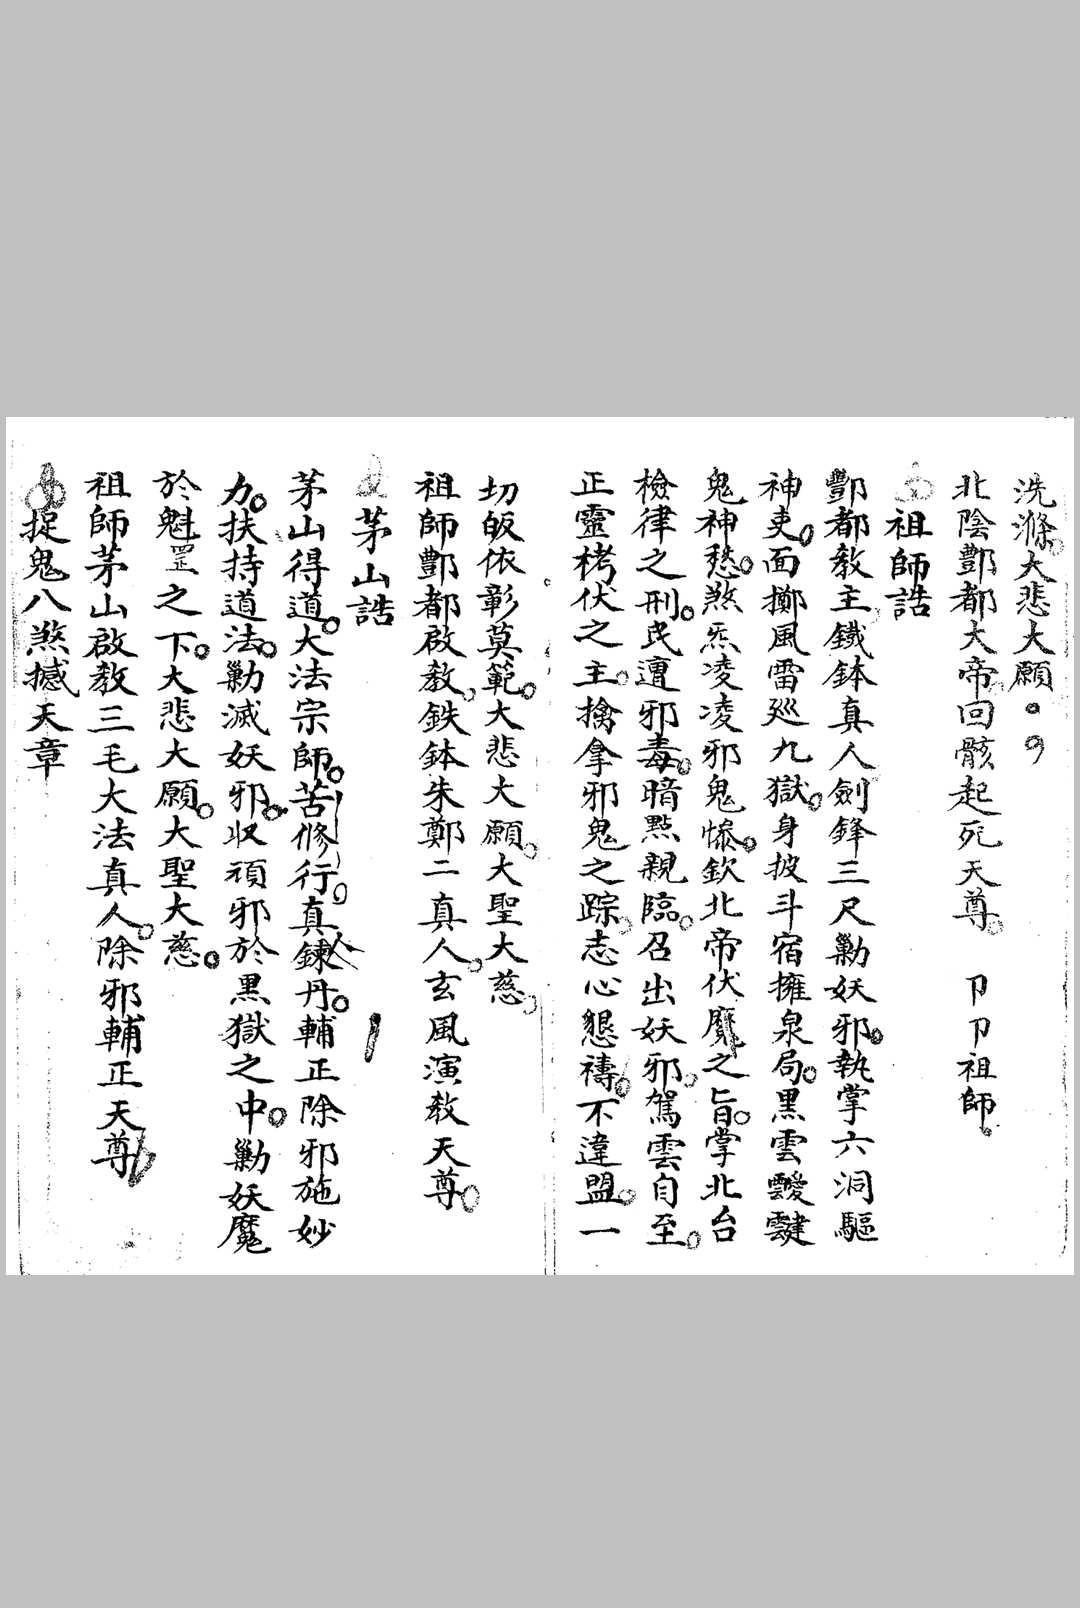 洗滌大悲大願
北陰酆都大帝回骸起死天尊 卩卩祖師
祖師誥
酆都教主鐵鉢真人劍鋒三尺勦妖邪執掌六洞驅
神吏面擲風雷廵九獄身披斗宿擁泉局黑雲靉靆
鬼神愁煞炁凌凌邪鬼慘欽北帝伏魔之旨掌北台
檢律之刑民遭邪毒暗點親臨召出妖邪駕雲自至
正靈栲伏之主擒拿邪鬼之踪志心懇禱不違盟一
切皈依彰莫範大悲大願大聖大慈
祖師酆都啟教鉄鉢朱鄭二真人玄風演教天尊
茅山誥
茅山得道大法宗師苦修行真鍊丹輔正除邪施妙
力扶持道法勦滅妖邪收頑邪於黑獄之中勦妖魔
於魁罡之下大悲大願大聖大慈
祖師茅山啟教三毛大法真人除邪輔正天尊
捉鬼八煞撼天章